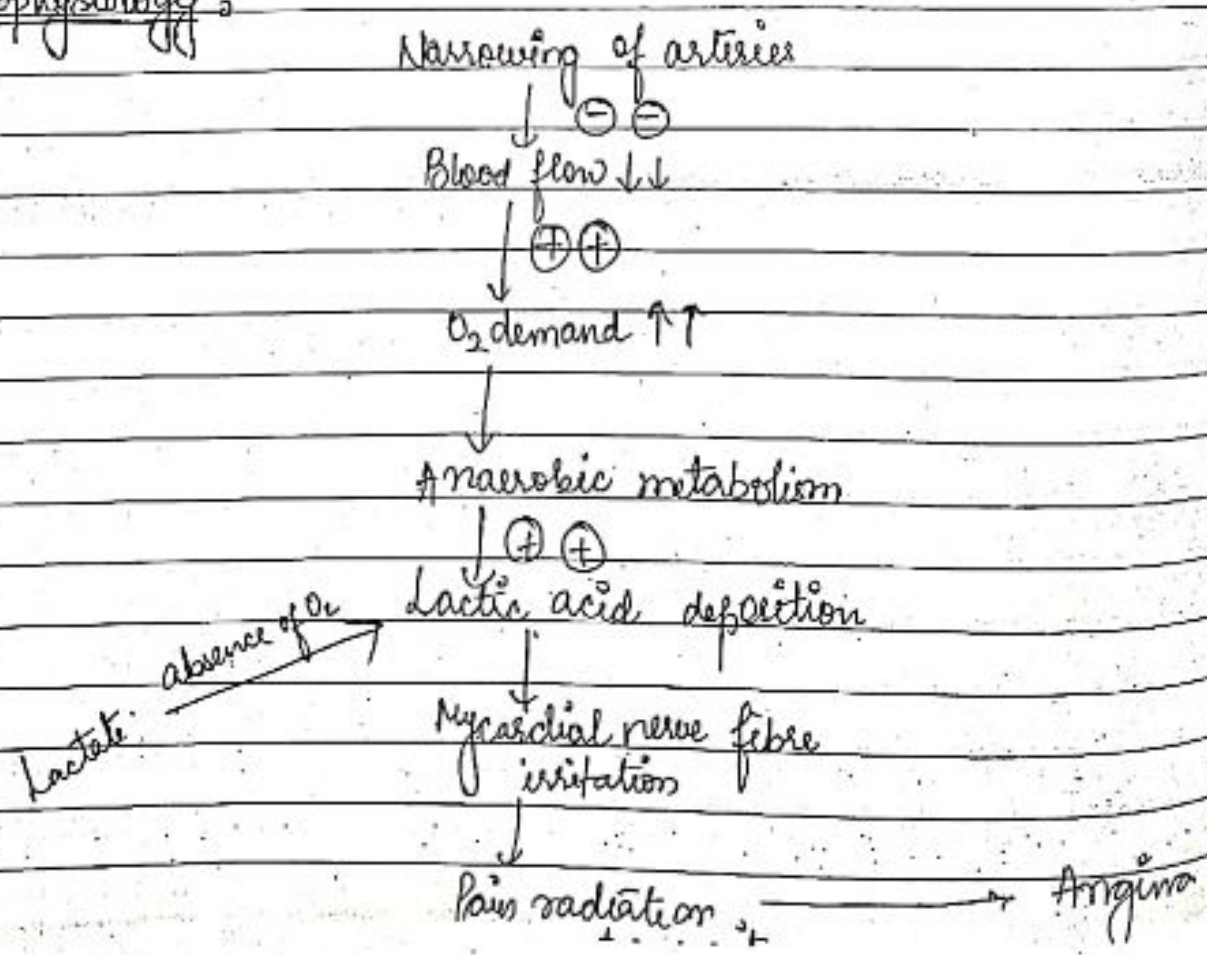 ophysiology :
Narrowing of arteries
↓ ⊖ ⊖
Blood flow ↓↓
↓ ⊕ ⊕
O₂ demand ↑↑
↓
Anaerobic metabolism
↓ ⊕ ⊕
Lactic acid deposition
absence of O₂
↓
Lactate
Mycardial nerve fibre
irritation
↓
Pain radiation → Angina